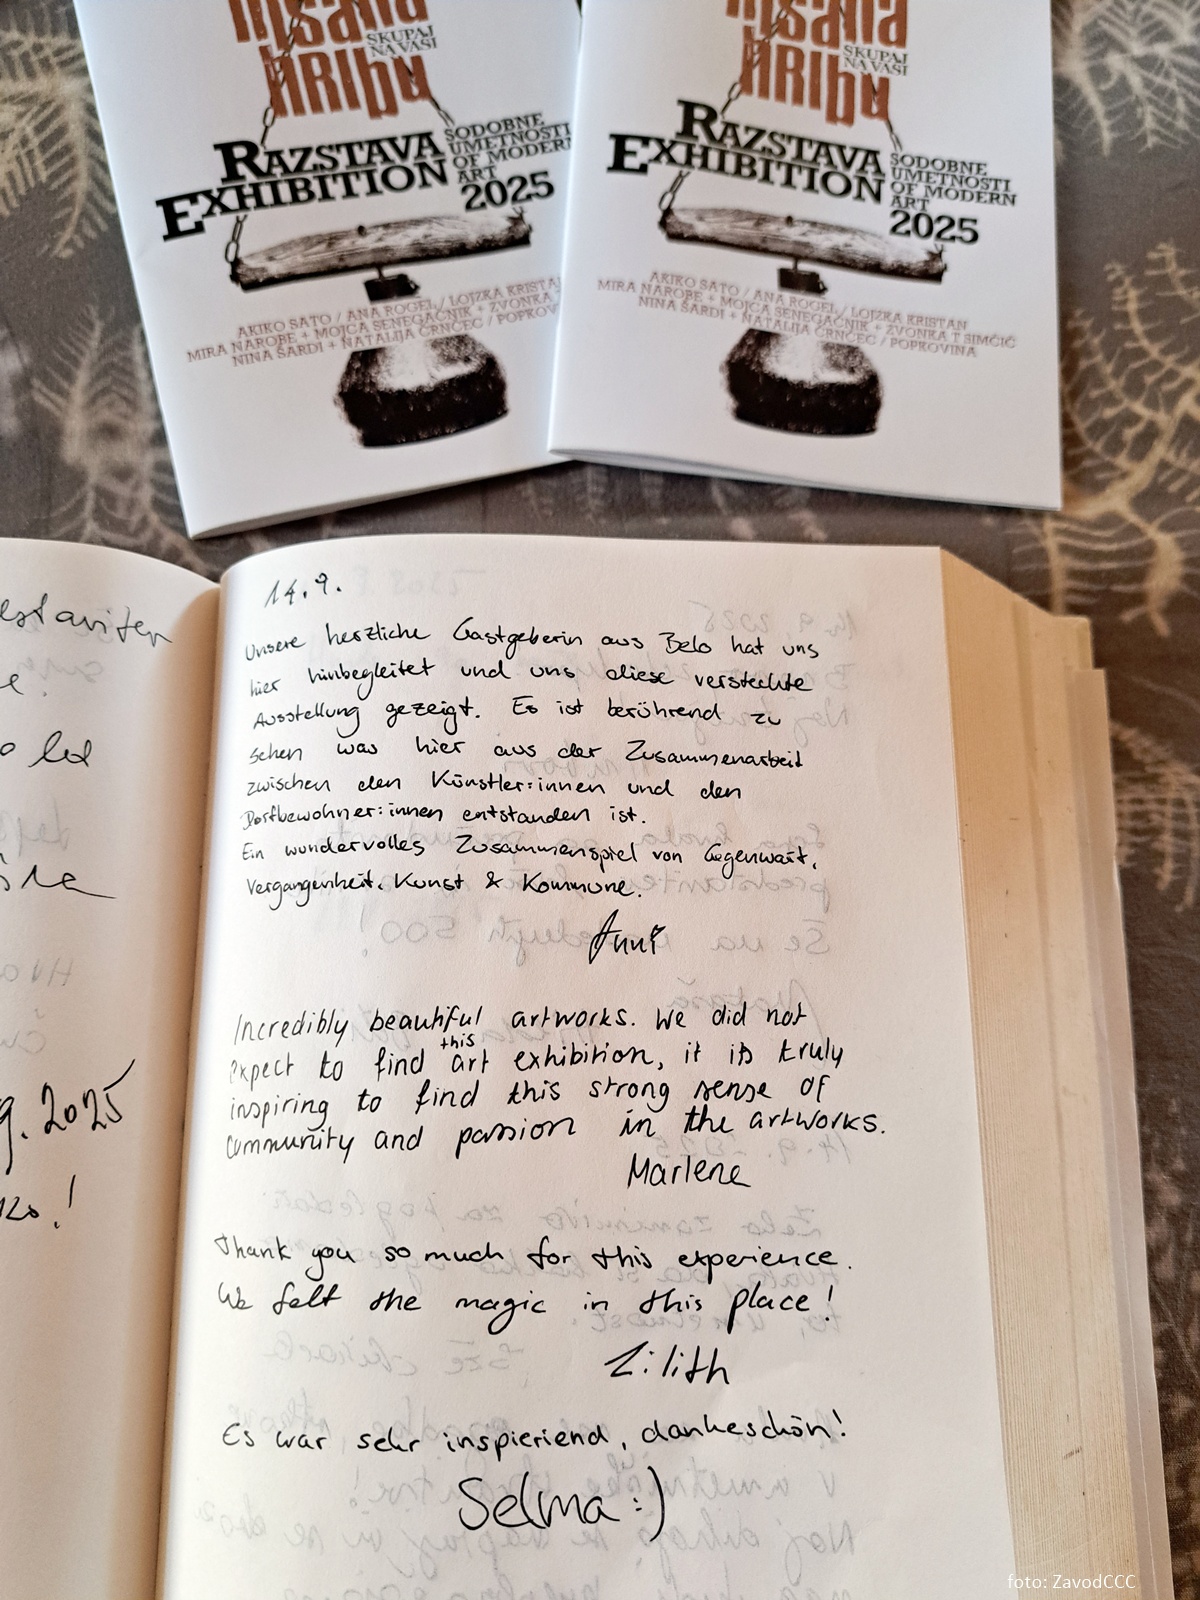 HRIBU
SKUPAJ
NA VASI
RAZSTAVA
EXHIBITION
SODOBNE
UMETNOSTI
OF MODERN
ART
2025
AKIKO SATO / ANA ROGEL / LOJZKA KRISTAN
MIRA NAROBE + MOJCA SENEGAČNIK + ZVONKA T
NINA ŠARDI + NATALIJA ČRNČEC / POPKOVINA
HRIBU
SKUPAJ
NA VASI
RAZSTAVA
EXHIBITION
SODOBNE
UMETNOSTI
OF MODERN
ART
2025
AKIKO SATO / ANA ROGEL / LOJZKA KRISTAN
MIRA NAROBE + MOJCA SENEGAČNIK + ZVONKA T SIMČIČ
NINA ŠARDI + NATALIJA ČRNČEC / POPKOVINA
let
9. 2025
14.9.
Unsere herzliche Gastgeberin aus Belo hat uns
hier hinbegleitet und uns diese versteckte
Ausstellung gezeigt. Es ist berührend zu
sehen was hier aus der Zusammenarbeit
zwischen den Künstler:innen und den
Dorfbewohner:innen entstanden ist.
Ein wundervolles Zusammenspiel von Gegenwart,
Vergangenheit, Kunst & Kommune.
Anni
Incredibly beautiful artworks. We did not
expect to find this art exhibition, it is truly
inspiring to find this strong sense of
community and passion in the artworks.
Marlene
Thank you so much for this experience.
We felt the magic in this place!
Lilith
Es war sehr inspirierend, dankeschön!
Selma :)
foto: ZavodCCC